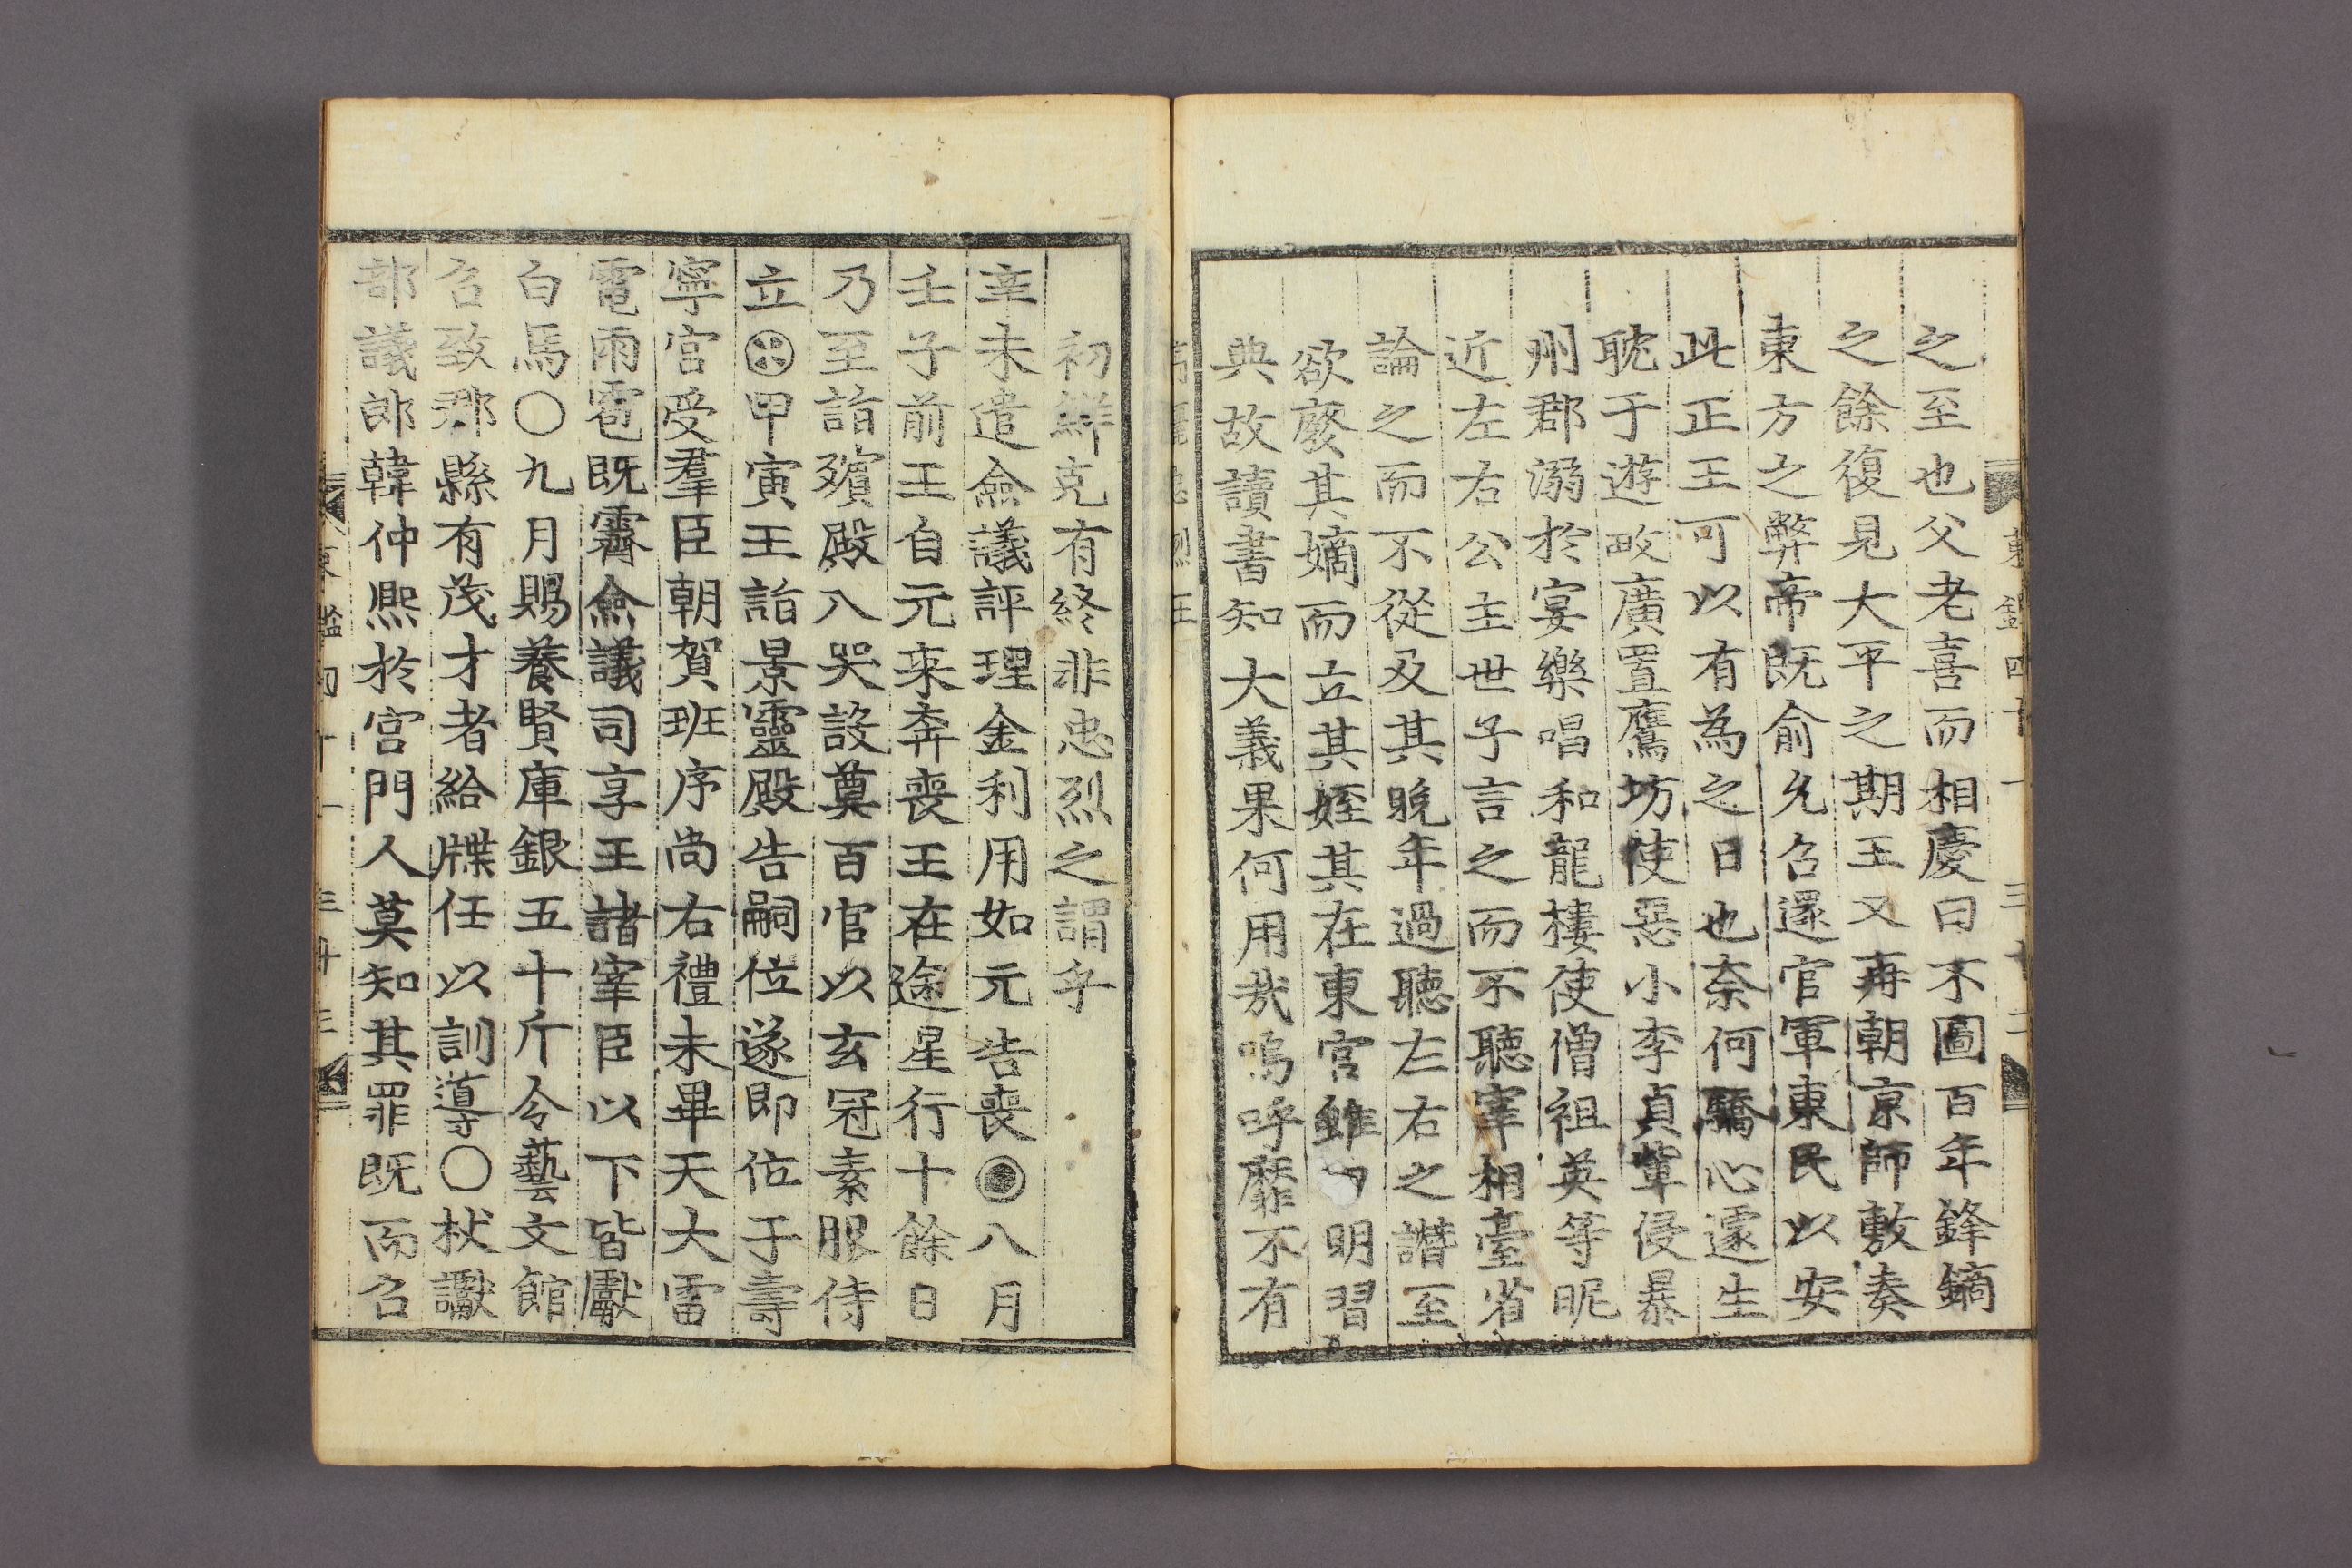 之至也父老喜而相慶曰不圖百年鋒鏑
之餘復見大平之期王又再朝京師敷奏
東方之弊帝既俞允召還官軍東民以安
此正王可以有為之日也奈何驕心遽生
耽于遊畋廣置鷹坊使惡小李貞軰侵暴
州郡溺於宴樂唱和龍樓使僧祖英等昵
近左右公主世子言之而不聽宰相臺省
論之而不從及其晩年過聽左右之譖至
欲廢其嫡而立其姪其在東宮雖曰明習
典故讀書知大義果何用㢤嗚呼靡不有
初鮮克有終非忠烈之謂乎
辛未遣僉議評理金利用如元告喪八月
壬子前王自元来奔喪王在途星行十餘日
乃至詣殯殿入哭設奠百官以玄冠素服侍
立甲寅王詣景靈殿告嗣位遂即位于壽
寧宮受羣臣朝賀班序尚右禮未畢天大雷
電雨雹既霽僉議司享王諸宰臣以下皆獻
白馬〇九月賜養賢庫銀五十斤令藝文館
召致郡縣有茂才者給牒任以訓導〇杖讞
部議郎韓仲熙於宮門人莫知其罪既而召